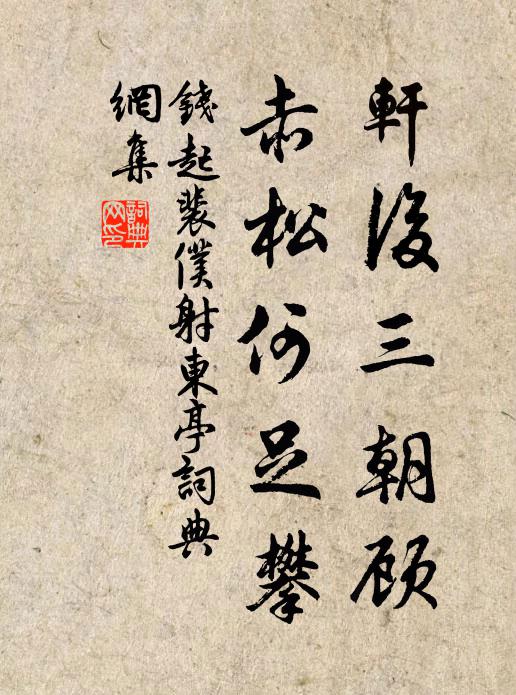 軒後三朝顾
赤松何足攀
錢起裴僕射東亭詞典
網集
詞典網印